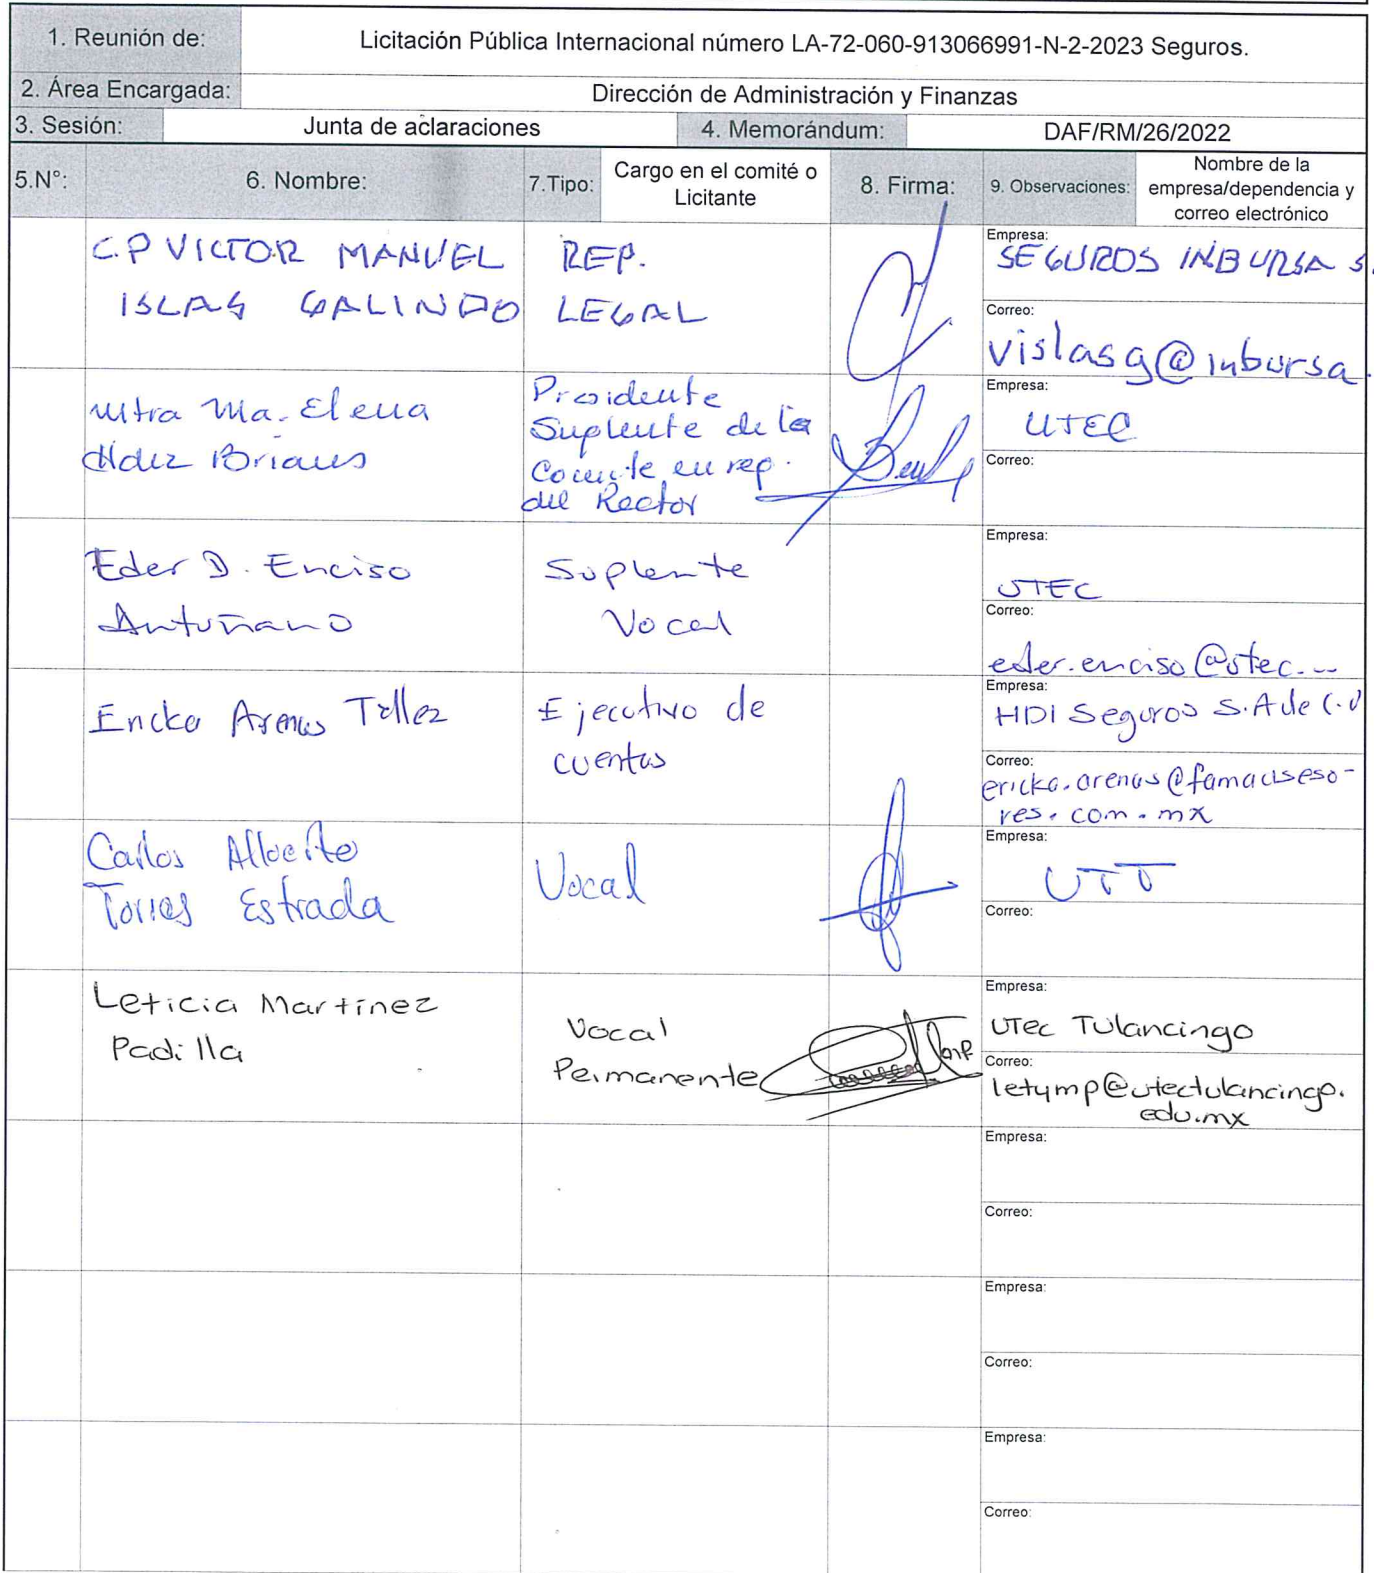 1. Reunión de: Licitación Pública Internacional número LA-72-060-913066991-N-2-2023 Seguros.
2. Área Encargada: Dirección de Administración y Finanzas
3. Sesión: Junta de aclaraciones 4. Memorándum: DAF/RM/26/2022
5.N°: 6. Nombre: 7.Tipo: Cargo en el comité o Licitante 8. Firma: 9. Observaciones: Nombre de la empresa/dependencia y correo electrónico
C.P VICTOR MANUEL
ISLAS GALINDO
REP.
LEGAL
Empresa:
SEGUROS INBURSA S.
Correo:
vislasg@inbursa.
Mtra Ma. Elena
Hdez Briones
Presidente
Suplente de la
Comite en rep.
del Rector
Empresa:
UTEC
Correo:
Eder D. Enciso
Antuñano
Suplente
Vocal
Empresa:
UTEC
Correo:
eder.enciso@utec...
Ericka Arenas Tellez
Ejecutivo de
cuentas
Empresa:
HDI Seguros S.A de C.V
Correo:
ericka.arenas@famaseso-
res.com.mx
Carlos Alberto
Torres Estrada
Vocal
Empresa:
UTT
Correo:
Leticia Martinez
Padilla
Vocal
Permanente
Empresa:
UTec Tulancingo
Correo:
letymp@utectulancingo.
edu.mx
Empresa:
Correo:
Empresa:
Correo:
Empresa:
Correo: